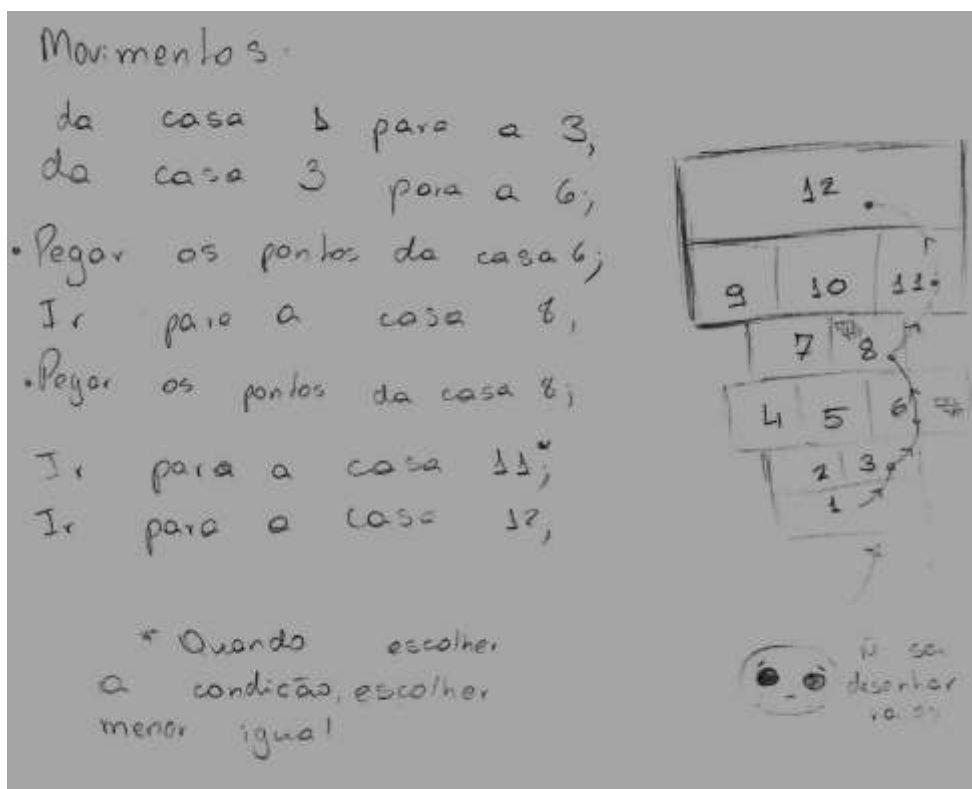 Movimentos:
da casa 1 para a 3,
da casa 3 para a 6;
• Pegar os pontos da casa 6;
Ir para a casa 8,
• Pegar os pontos da casa 8;
Ir para a casa 11*;
Ir para a casa 12,
* Quando escolher
a condição, escolher
menor igual
12
9 10 11
7 8
4 5 6
2 3
1
Ñ sei
desenhar